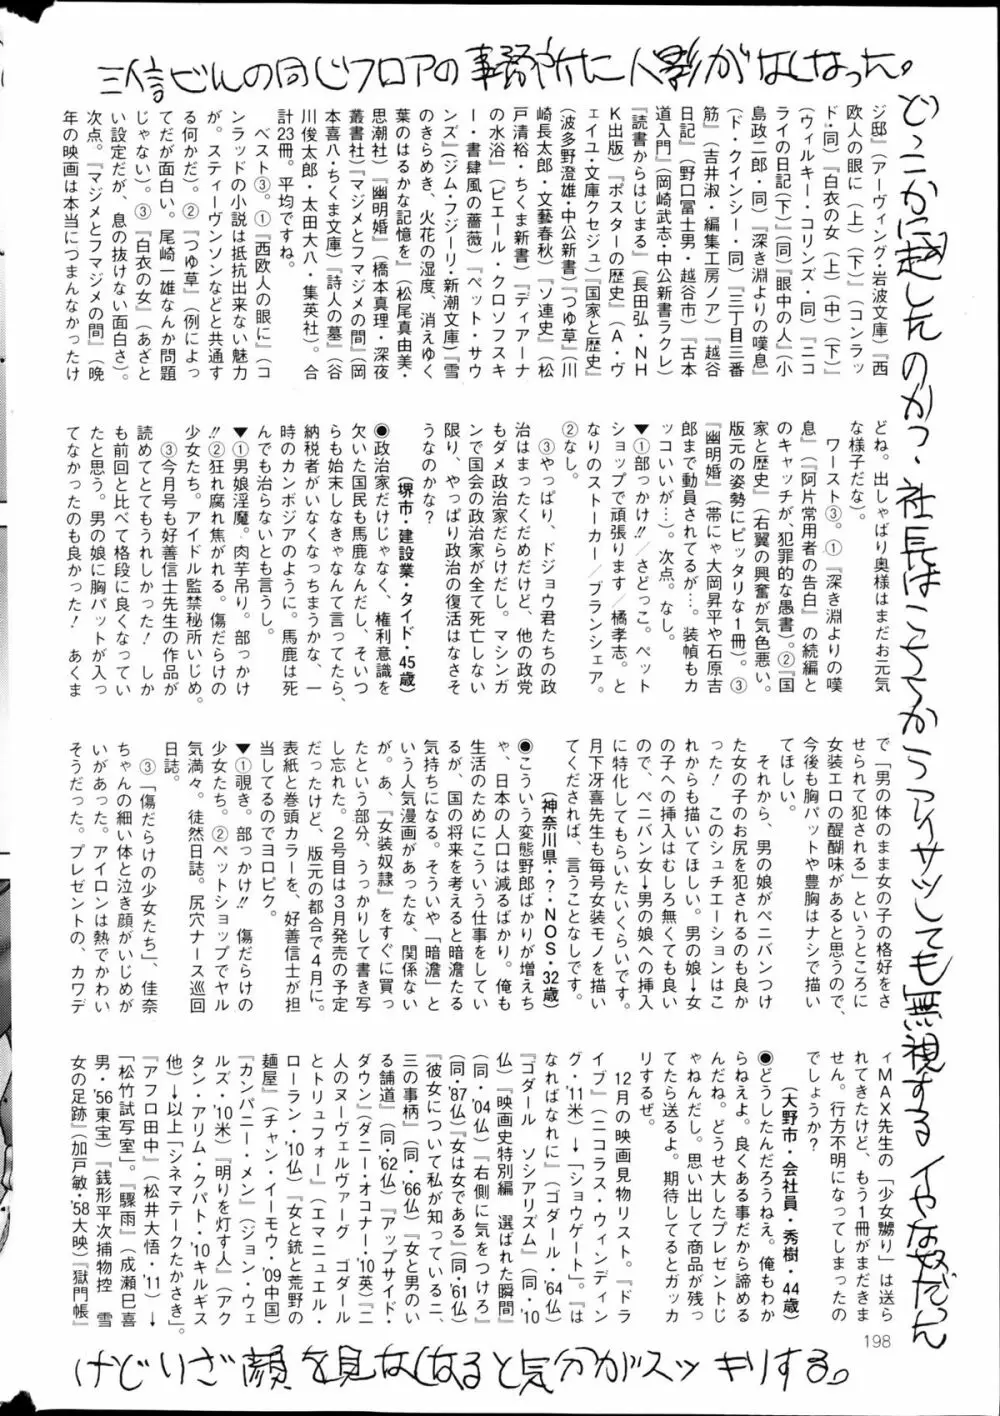 三信ビルの同じフロアの事務所に人影がなくなった。
どっこかに越したのかっ・社長はこっちからアイサツしても無視するイヤな奴だった
けどいざ顔を見なくなると気分がスッキリする。
ジ邸』(アーヴィング・岩波文庫)『西
欧人の眼に(上)(下)』(コンラッ
ド・同)『白衣の女(上)(中)(下)』
(ウィルキー・コリンズ・同)『ニコ
ライの日記(下)』(同)『眼中の人』(小
島政二郎・同)『深き淵よりの嘆息』
(ド・クインシー・同)『三丁目三番
筋』(吉井淑・編集工房ノア)『越谷
日記』(野口冨士男・越谷市)『古本
道入門』(岡崎武志・中公新書ラクレ)
『読書からはじまる』(長田弘・NH
K出版)『ポスターの歴史』(A・ヴ
ェイユ・文庫クセジュ)『国家と歴史』
(波多野澄雄・中公新書)『つゆ草』(川
崎長太郎・文藝春秋)『ソ連史』(松
戸清裕・ちくま新書)『ディアーナ
の水浴』(ピエール・クロソフスキ
ー・書肆風の薔薇)『ペット・サウ
ンズ』(ジム・フジーリ・新潮文庫)『雪
のきらめき、火花の湿度、消えゆく
葉のはるかな記憶を』(松尾真由美・
思潮社)『幽明婚』(橋本真理・深夜
叢書社)『マジメとフマジメの間』(岡
本喜八・ちくま文庫)『詩人の墓』(谷
川俊太郎・太田大八・集英社)。合
計23冊。平均ですね。
ベスト③。①『西欧人の眼に』(コ
ンラッドの小説は抵抗出来ない魅力
が。スティーヴンソンなどと共通す
る何かだ)。②『つゆ草』(例によっ
てだが面白い。尾崎一雄なんか問題
じゃない)。③『白衣の女』(あざと
い設定だが、息の抜けない面白さ)。
次点。『マジメとフマジメの間』(晩
年の映画は本当につまんなかったけ
どね。出しゃばり奥様はまだお元気
な様子だな)。
ワースト③。①『深き淵よりの嘆
息』(『阿片常用者の告白』の続編と
のキャッチが、犯罪的な愚書)。②『国
家と歴史』(右翼の興奮が気色悪い。
版元の姿勢にピッタリな1冊)。③
『幽明婚』(帯にゃ大岡昇平や石原吉
郎まで動員されてるが…。装幀もカ
ッコいいが…)。次点。なし。
▼①部っかけ!!/さどっこ。ペット
ショップで頑張ります/橘孝志。と
なりのストーカー/ブランシェア。
②なし。
③やっぱり、ドジョウ君たちの政
治はまったくだめだけど、他の政党
もダメ政治家だらけだし。マシンガ
ンで国会の政治家が全て死亡しない
限り、やっぱり政治の復活はなさそ
うなのかな?
(堺市・建設業・タイド・45歳)
●政治家だけじゃなく、権利意識を
欠いた国民も馬鹿なんだし、そいつ
らも始末しなきゃなんて言ってたら、
納税者がいなくなっちまうかな、一
時のカンボジアのように。馬鹿は死
んでも治らないとも言うし。
▼①男娘淫魔。肉芋吊り。部っかけ
!!②狂れ腐れ焦がれる。傷だらけの
③今月号も好善信士先生の作品が
読めてとてもうれしかった! しか
も前回と比べて格段に良くなってい
たと思う。男の娘に胸パットが入っ
てなかったのも良かった! あくま
で「男の体のまま女の子の格好をさ
せられて犯される」というところに
女装エロの醍醐味があると思うので、
今後も胸パットや豊胸はナシで描い
てほしい。
それから、男の娘がペニバンつけ
た女の子のお尻を犯されるのも良か
った! このシュチエーションはこ
れからも描いてほしい。男の娘→女
の子への挿入はむしろ無くても良い
ので、ペニバン女→男の娘への挿入
に特化してもらいたいくらいです。
月下冴喜先生も毎号女装モノを描い
てくだされば、言うことなしです。
(神奈川県・?・NOS・32歳)
●こういう変態野郎ばかりが増えち
ゃ、日本の人口は減るばかり。俺も
生活のためにこういう仕事をしてい
るが、国の将来を考えると暗澹たる
気持ちになる。そういや「暗澹」と
いう人気漫画があったな、関係ない
が。あ、『女装奴隷』をすぐに買っ
たという部分、うっかりして書き写
し忘れた。2号目は3月発売の予定
だったけど、版元の都合で4月に。
表紙と巻頭カラーを、好善信士が担
当してるのでヨロピク。
▼①覗き。部っかけ!! 傷だらけの
少女たち。②ペットショップでヤル
気満々。徒然日誌。尻穴ナース巡回
日誌。
そうだった。プレゼントの、カワデ
ィMAX先生の「少女嬲り」は送ら
れてきたけど、もう1冊がまだきま
せん。行方不明になってしまったの
でしょうか?
(大野市・会社員・秀樹・44歳)
●どうしたんだろうねえ。俺もわか
らねえよ。良くある事だから諦める
んだね。どうせ大したプレゼントじ
ゃねんだし。思い出して商品が残っ
てたら送るよ。期待してるとガッカ
リするぜ。
12月の映画見物リスト。『ドラ
イブ』(ニコラス・ウィンディン
グ・'11米)→「ショウゲート」。『は
なればなれに』(ゴダール・'64仏)
『ゴダール ソシアリズム』(同・'10
仏)『映画史特別編 選ばれた瞬間』
(同・'04仏)『右側に気をつけろ』
(同・'87仏)『女は女である』(同・'61仏)
『彼女について私が知っている二、
三の事柄』(同・'66仏)『女と男のい
る舗道』(同・'62仏)『アップサイド・
ダウン』(ダニー・オコナー・'10英)『二
人のヌーヴェルヴァーグ ゴダール
とトリュフォー』(エマニュエル・
ローラン・'10仏)『女と銃と荒野の
麺屋』(チャン・イーモウ・'09中国)
『カンパニー・メン』(ジョン・ウェ
ルズ・'10米)『明りを灯す人』(アク
タン・アリム・クバト・'10キルギス
他)→以上「シネマテークたかさき」。
『アフロ田中』(松井大悟・'11)→
「松竹試写室」。『驟雨』(成瀬巳喜
男・'56東宝)『銭形平次捕物控 雪
女の足跡』(加戸敏・'58大映)『獄門帳』
198